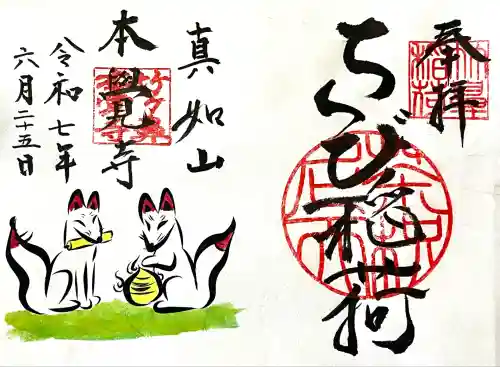 奉拝
稲荷
真如山
本覺寺
令和七年
六月二十五日